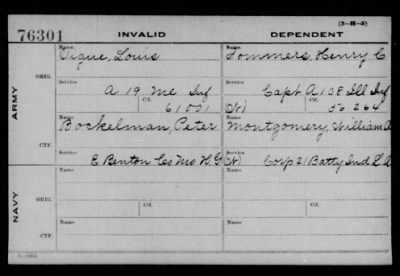 (3-H-2)
76301 INVALID DEPENDENT
ARMY
ORIG.
Name Name
Vigue, Louis Sommers, Henry C
Service Service
A 19 Me Inf Capt A 108 Ill Inf
Ctf. Ctf.
61001 (W) 56264
CTF.
Name Name
Bockelman, Peter Montgomery, William A
Service Service
E Benton Co Mo H G (W) Corp 21 Batty Ind L A
NAVY
ORIG.
Name Name
Ctf. Ctf.
CTF.
Name Name